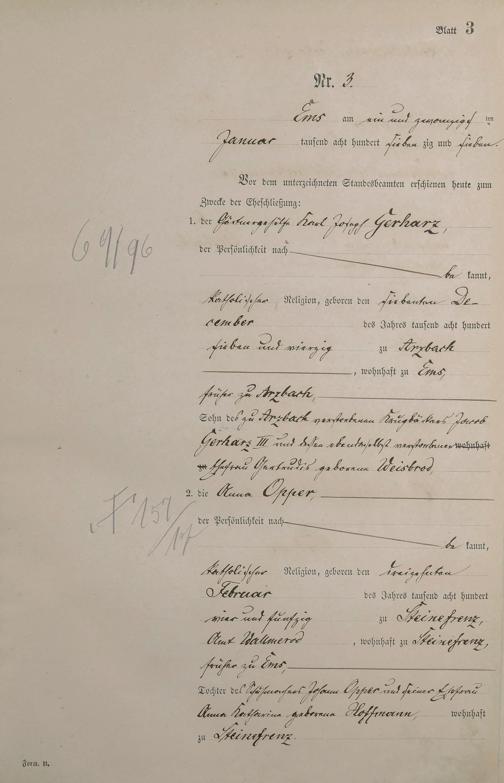 Blatt 3
Nr. 3.
Ems am ein und zwanzigsten
Januar tausend acht hundert siebenzig und sieben.
Vor dem unterzeichneten Standesbeamten erschienen heute zum
Zwecke der Eheschließung:
1. der Gärtnergehülfe Karl Joseph Gerharz,
der Persönlichkeit nach
bekannt,
katholischer Religion, geboren den siebenten De-
cember des Jahres tausend acht hundert
sieben und vierzig zu Arzbach
, wohnhaft zu Ems,
früher zu Arzbach,
Sohn des zu Arzbach verstorbenen Krugbäckers Jacob
Gerharz III und dessen ebendaselbst verstorbener wohnhaft
Ehefrau Gertrudis geborene Weisbrod
2. die Anna Opper,
der Persönlichkeit nach
bekannt,
katholischer Religion, geboren den dreizehnten
Februar des Jahres tausend acht hundert
vier und fünfzig zu Steinefrenz,
Amt Wallmerod, wohnhaft zu Steinefrenz,
früher zu Ems,
Tochter des Schuhmachers Johann Opper und seiner Ehefrau
Anna Katharina geborene Hoffmann, wohnhaft
zu Steinefrenz.
Form. B.